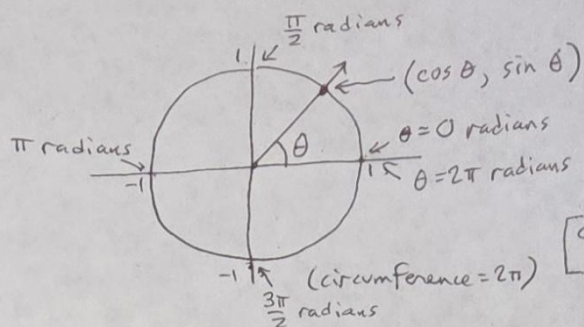 π/2 radians
1
(cos θ, sin θ)
θ=0 radians
π radians
θ
-1
1
θ=2π radians
-1
(circumference=2π)
3π/2 radians